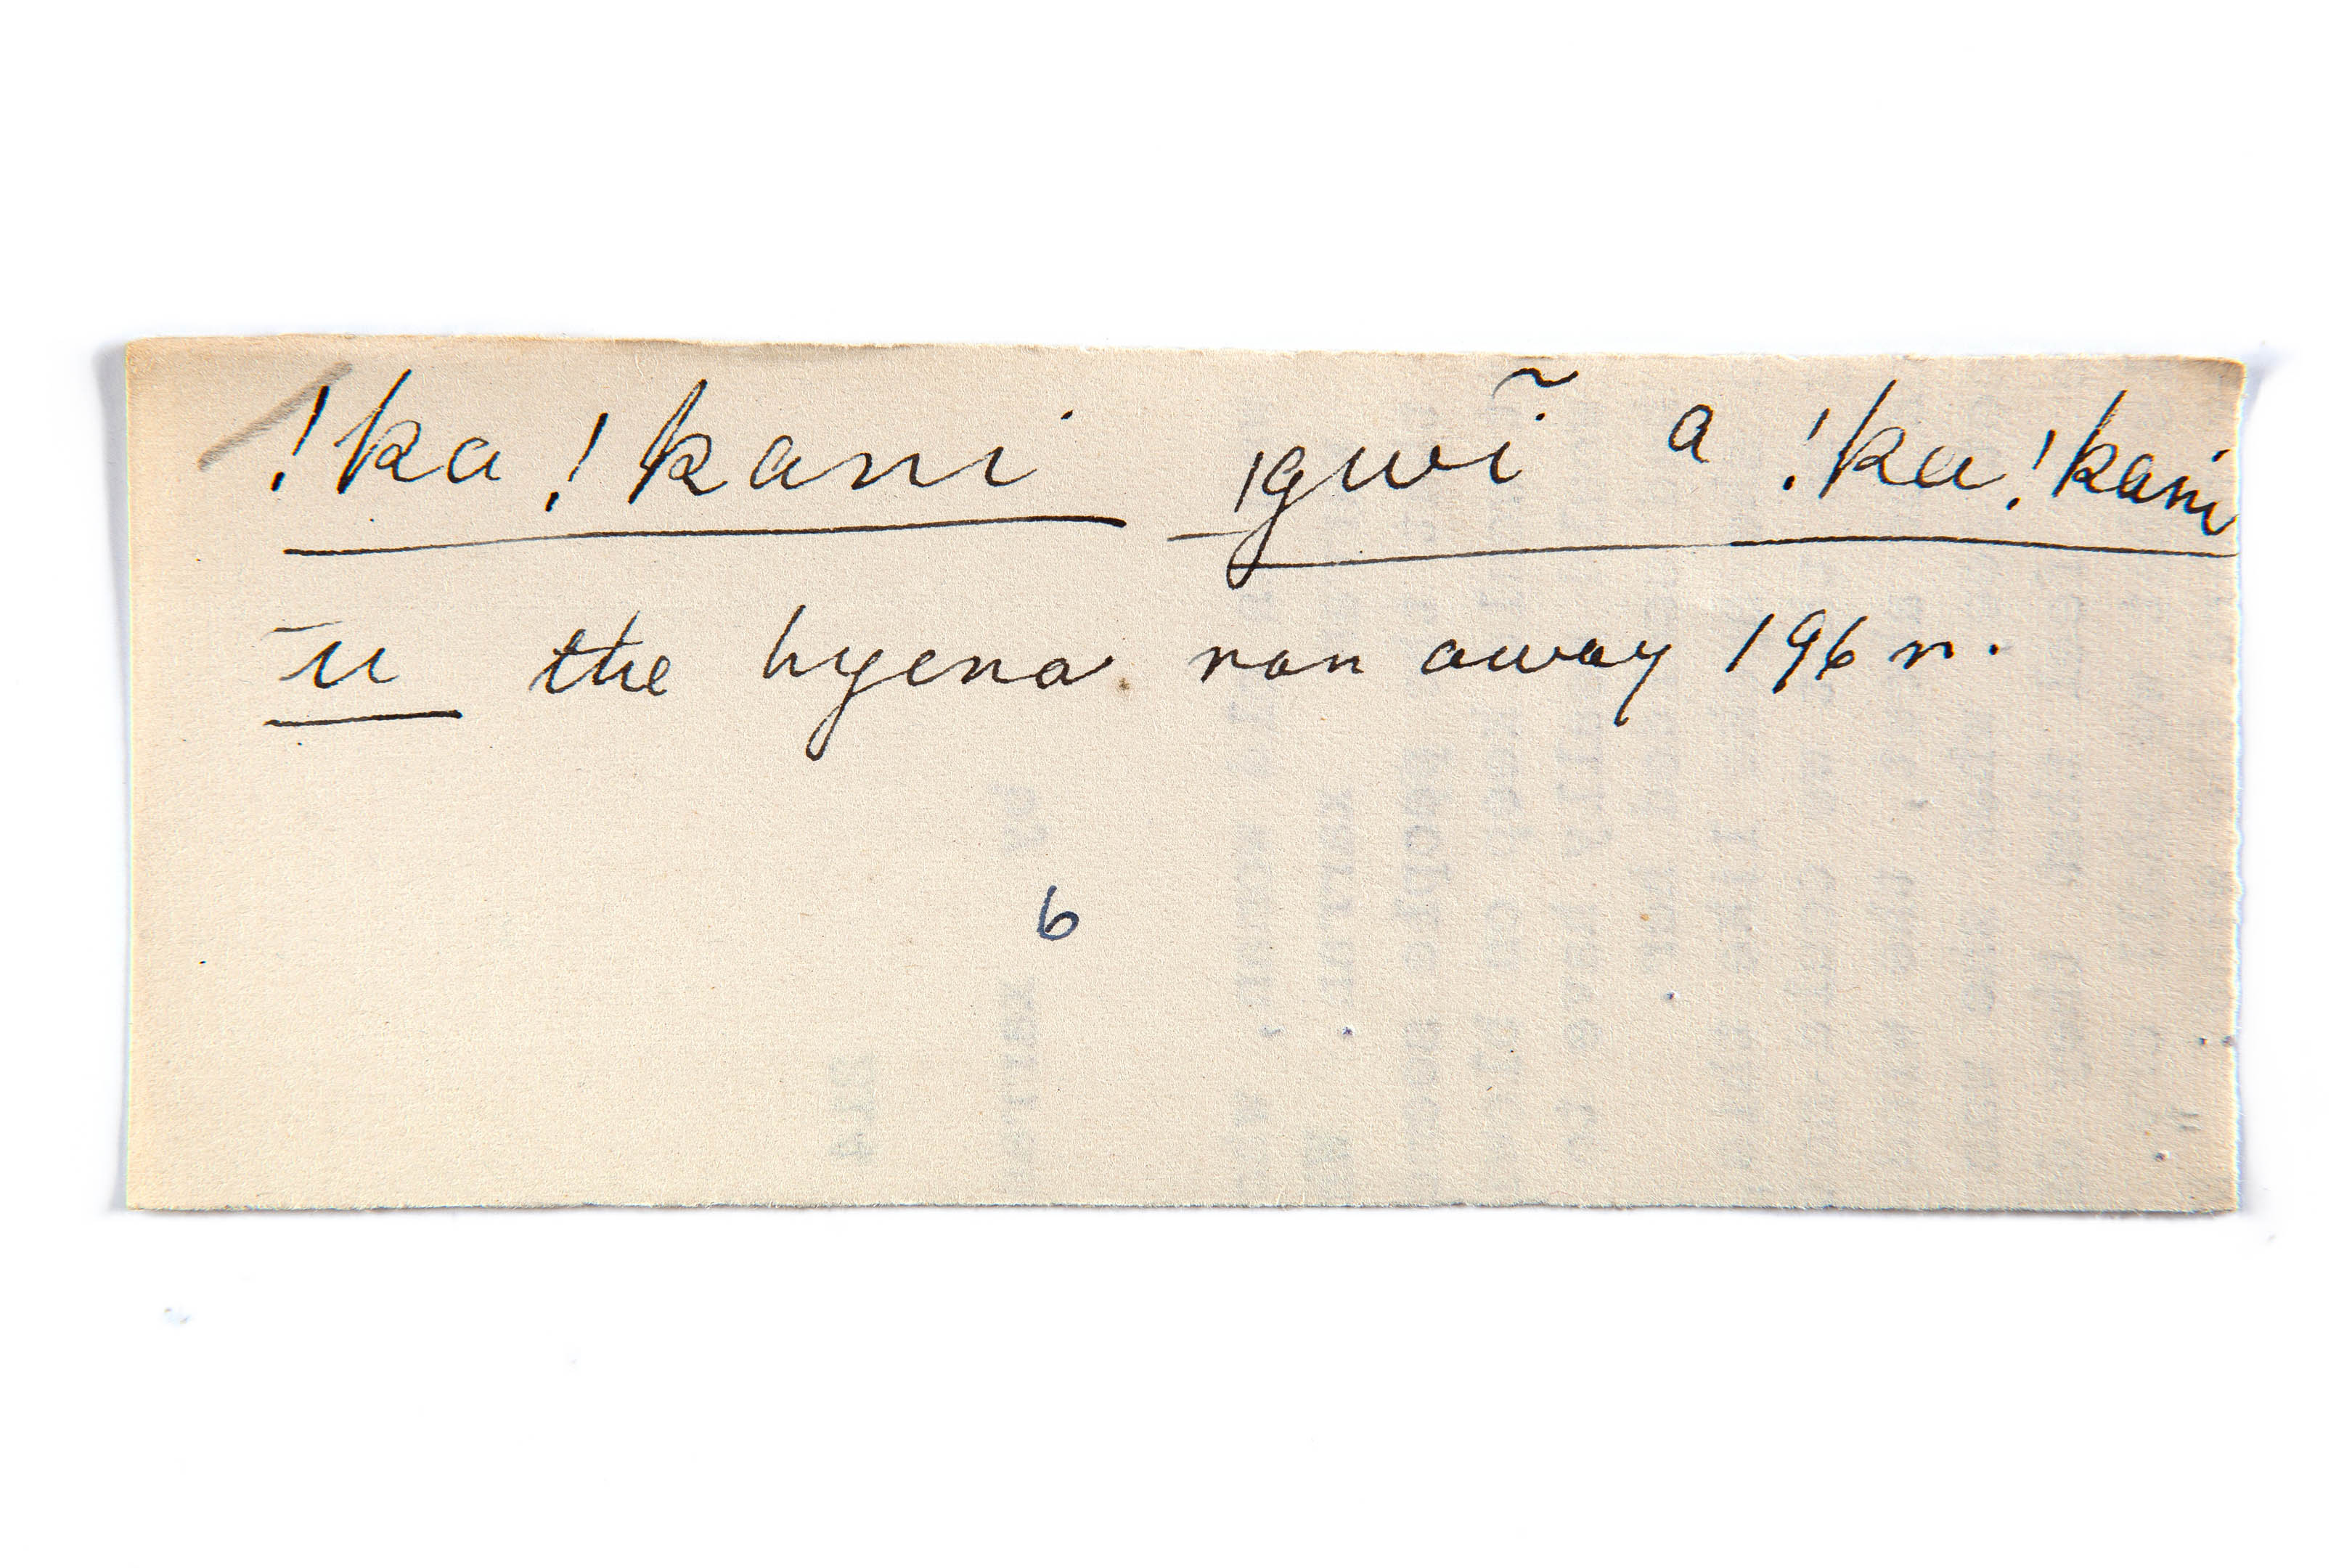 !ka!kani ǀgwĩ a !ka!kani
ū the hyena ran away 196 r.
6